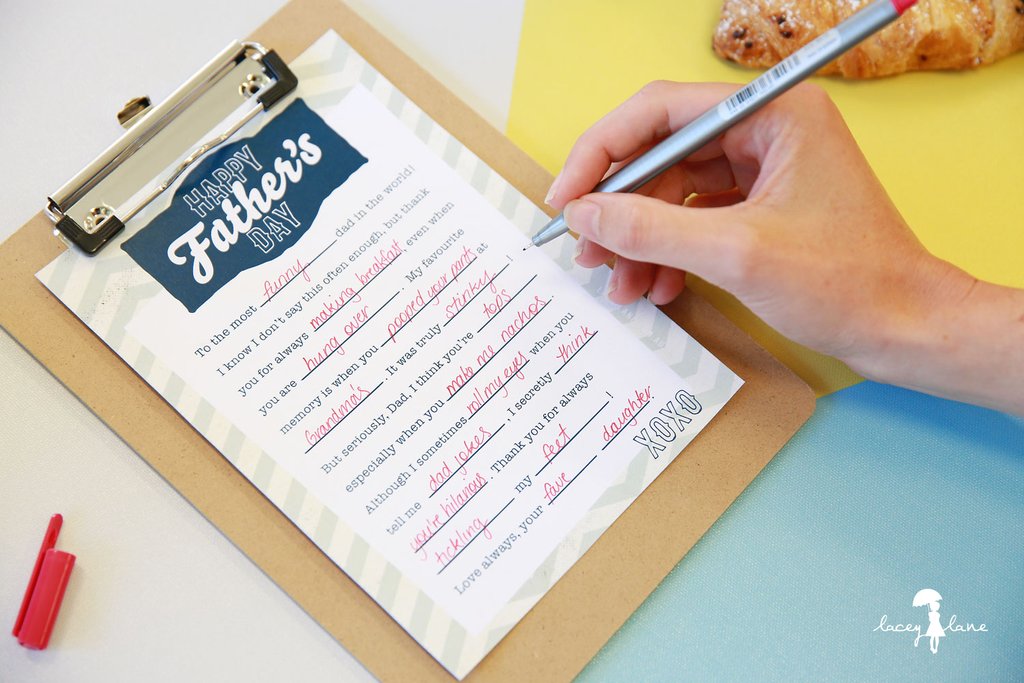 HAPPY
Father's
DAY
To the most funny dad in the world!
I know I don't say this often enough, but thank
you for always making breakfast, even when
you are hung over. My favourite
memory is when you pooped your pants at
Grandma's. It was truly stinky!
But seriously, Dad, I think you're tops
especially when you make me nachos.
Although I sometimes roll my eyes when you
tell me dad jokes, I secretly think
you're hilarious. Thank you for always
tickling my feet!
Love always, your fave daughter.
XOXO
lacey lane